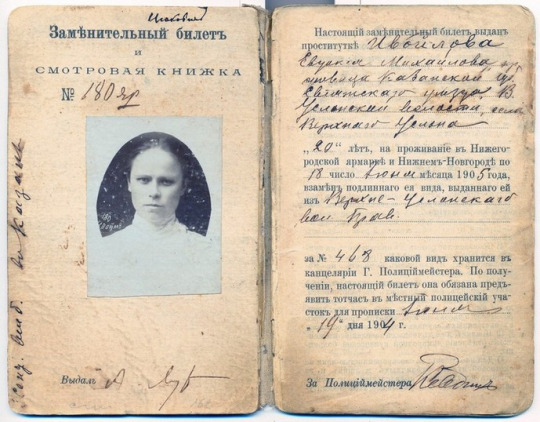 Замѣнительный билетъ
и
СМОТРОВАЯ КНИЖКА
№ 180 яр
Выдалъ
Настоящій замѣнительный билетъ выданъ
проституткѣ Ивойлова
Евдокія Михайлова кр
Казанской губ
Свіяжскаго уѣзда, В.
Услонской волости, села
Верхняго Услона
„20“ лѣтъ, на проживаніе въ Нижего-
родской ярмаркѣ и Нижнемъ-Новгородѣ по
18 число іюня мѣсяца 1905 года,
взамѣнъ подлиннаго ея вида, выданнаго ей
изъ Верхне-Услонскаго
вол Прав
за № 468 каковой видъ хранится въ
канцеляріи Г. Полиціймейстера. По полу-
ченіи, настоящій билетъ она обязана предъ-
явить тотчасъ въ мѣстный полицейскій уча-
стокъ для прописки іюня
„19“ дня 1904 г.
За Полиціймейстера